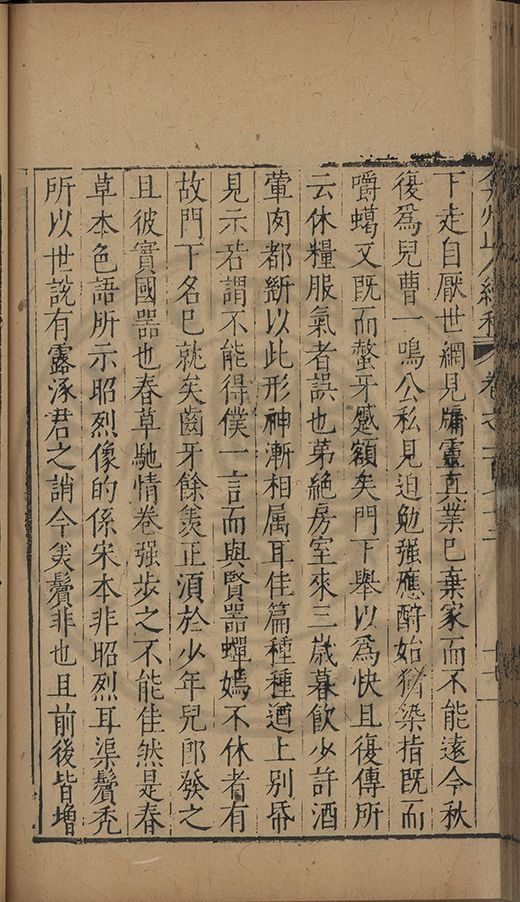 弇州山人續稿 卷之一百七十二 十一
下走自厭世網見牖靈真業已棄家而不能遠今秋
復為兒曹一鳴公私見迫勉強應酧始猶染指既而
嚼蠟又既而螫牙蹙額矣門下舉以為快且復傳所
云休糧服氣者誤也苐絕房室來三歲暮飲少許酒
葷肉都斷以此形神漸相属耳佳篇種種遒上別帋
見示若謂不能得僕一言而與賢器蟬嫣不休者有
故門下名已就矣齒牙餘羙正湏於少年兒郎發之
且彼實國器也春草馳情卷强步之不能佳然是春
草本色語所示昭烈像的係宋本非昭烈耳渠鬚禿
所以世說有露涿君之誚今羙鬚非也且前後皆增